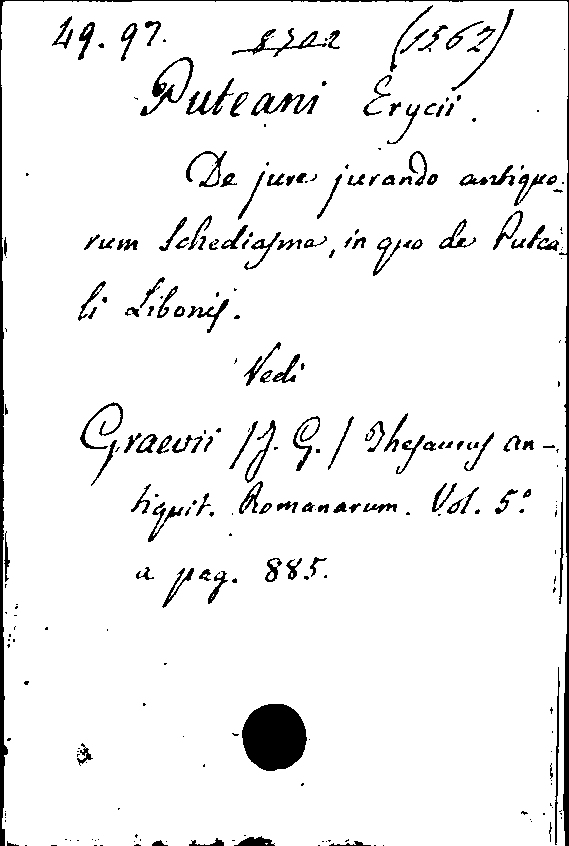 49.97. 8702 (1562)
Puteani Erycii.
De jure jurando antiquo-
rum Schediasma, in quo de Putea-
li Libonis.
Vedi
Graevii /J. G./ Thesaurus an-
tiquit. Romanarum. Vol. 5.º
a pag. 885.